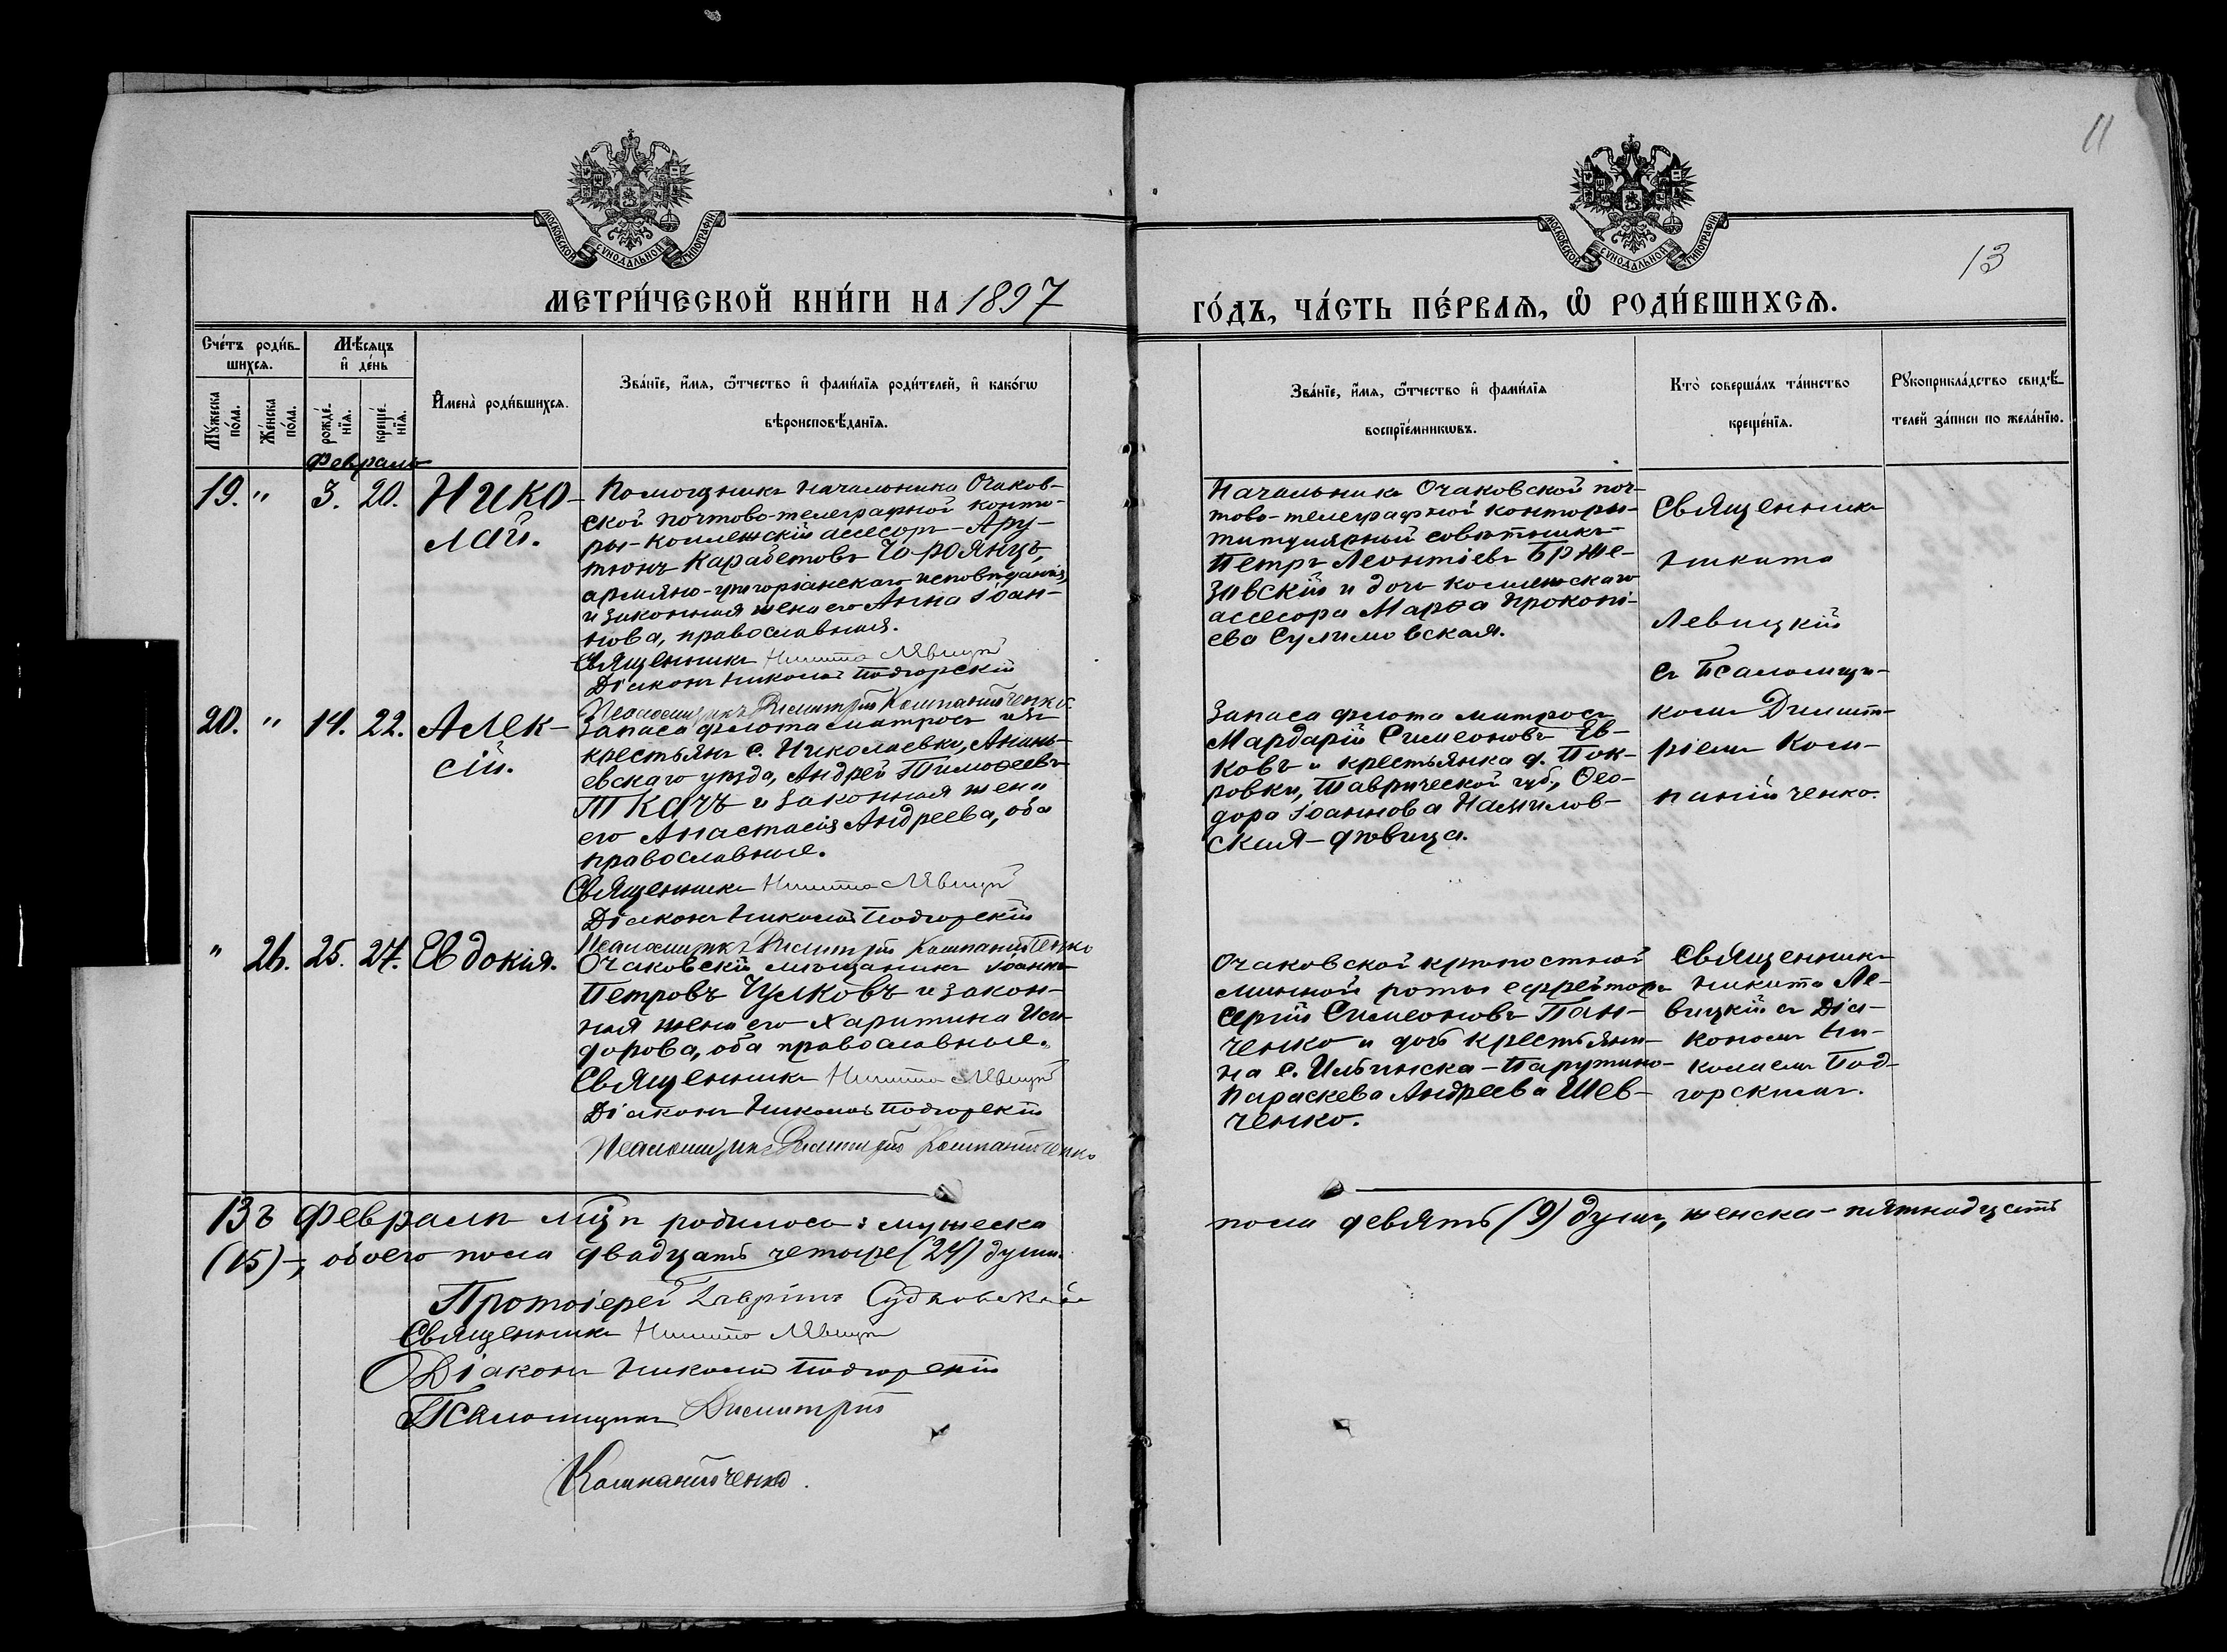 11
МОСКОВСКОЙ СУНОДАЛЬНОЙ ТИПОГРАФІИ
МОСКОВСКОЙ СУНОДАЛЬНОЙ ТИПОГРАФІИ
13
МЕТРИ́ЧЕСКОЙ КНИ́ГИ НА 1897
ГО́ДЪ, ЧА́СТЬ ПЕ́РВАѦ, Ѡ҆ РОДИ́ВШИХСѦ.
Сче́тъ роди́в-
шихсѧ.
Мѣ́сѧцъ
и҆ де́нь
Мꙋ́жеска
по́ла.
Же́нска
по́ла.
рожде́-
нїѧ.
креще́-
нїѧ.
И҆мена̀ роди́вшихсѧ.
Зва́нїе, и҆́мѧ, ѻ҆́тчество и҆ фами́лїѧ роди́телей, и҆ како́гѡ
вѣроисповѣ́данїѧ.
Зва́нїе, и҆́мѧ, ѻ҆́тчество и҆ фами́лїѧ
воспрїе́мникѡвъ.
Кто̀ соверша́лъ та́инство
креще́нїѧ.
Рꙋкоприкла́дство свидѣ́-
телей за́писи по жела́нїю.
Февраль
19. " 3. 20. Нико-
лай.
Помощникъ начальника Очаков-
ской почтово-телеграфной конто-
ры-коллежскій ассесоръ-Ару-
тюнъ Карабетовъ Чороянцъ,
армяно-григоріанскаго исповѣданія,
и законная жена его Анна Іоан-
нова, православная.
Священникъ Никита Левицкій
Діаконъ Николай Подгорскій
Псаломщикъ Димитрій Компанійченко
Начальникъ Очаковской поч-
тово-телеграфной конторы-
титулярный совѣтникъ-
Петръ Леонтіевъ Брже-
завскій и дочь коллежскаго
ассесора Марѳа Прокопі-
ева Сулимовская.
Священникъ
Никита
Левицкій
съ Псаломщи-
комъ Димит-
ріемъ Ком-
панійченко.
20. " 14. 22. Алек-
сій.
Запаса флота матросъ изъ
крестьянъ с. Николаевки, Анань-
евскаго уѣзда, Андрей Тимоѳеевъ
Ткачъ и законная жена
его Анастасія Андреева, оба
православные.
Священникъ Никита Левицкій
Діаконъ Николай Подгорскій
Псаломщикъ Димитрій Компанійченко
Запаса флота матросъ
Мардарій Симеоновъ Ев-
ковъ и крестьянка д. Пок-
ровки, Таврической губ., Ѳео-
дора Іоаннова
ская-дѣвица.
" 26. 25. 27. Евдокія.
Очаковскій мѣщанинъ Іоаннъ
Петровъ Чулковъ и закон-
ная жена его Харитина Иси-
дорова, оба православные.
Священникъ Никита Левицкій
Діаконъ Николай Подгорскій
Псаломщикъ Димитрій Компанійченко
Очаковской крѣпостной
минной роты ефрейторъ
Сергій Симеоновъ Пан-
ченко и дочь крестьяни-
на с. Ильинска-Парутино-
Параскева Андреева Шев-
ченко.
Священникъ
Никита Ле-
вицкій съ Діа-
кономъ Ни-
колаемъ Под-
горскимъ.
Въ Февралѣ мцѣ родилось: мужеска
пола девять (9) душъ, женска-пятнадцать
(15)-, обоего пола двадцать четыре (24) души.
Протоіерей Гавріилъ Судковскій
Священникъ Никита Левицкій
Діаконъ Николай Подгорскій
Псаломщикъ Димитрій
Компанійченко.